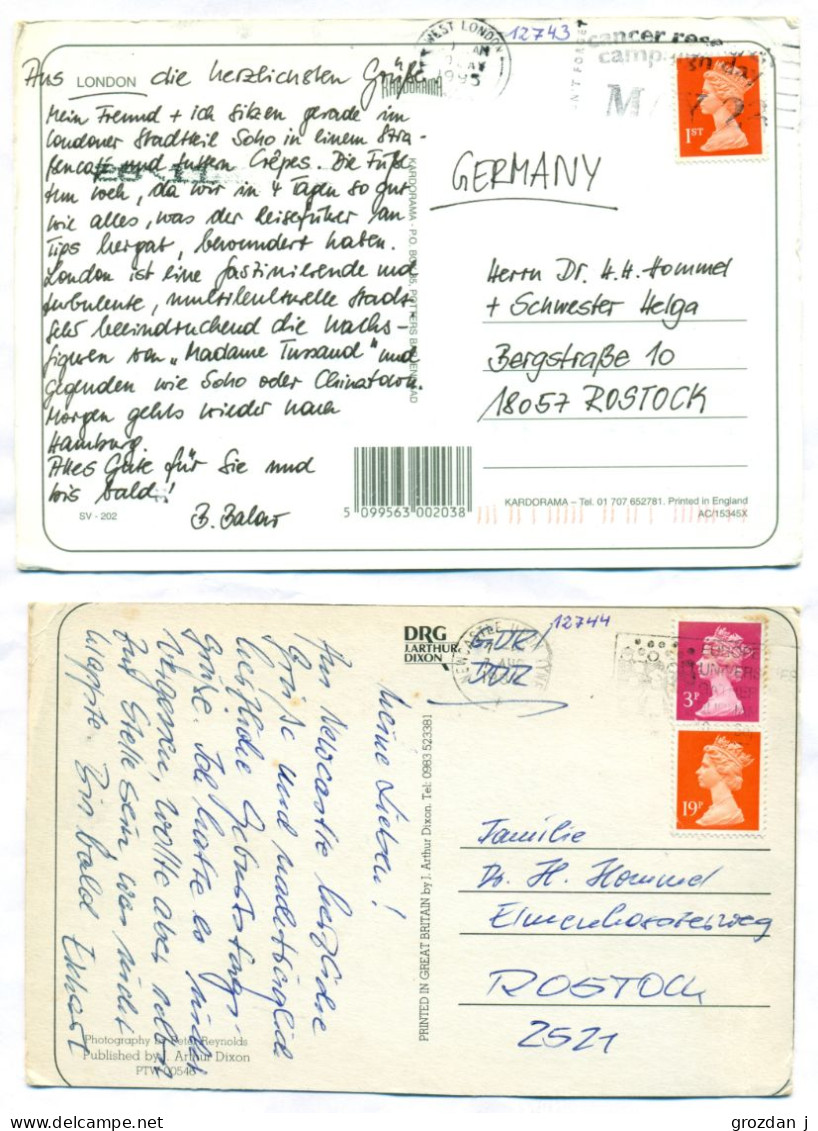 12743
WEST LONDON
1995
DON'T FORGET
cancer rese
camp
1ST
Aus LONDON die herzlichsten Grüße
Mein Freund + ich sitzen gerade im
Londoner Stadtteil Soho in einem Stra-
ßencafé und futtern Crêpes. Die Füße
tun weh, da wir in 4 Tagen so gut
wie alles, was der Reiseführer an
Tips hergab, bewundert haben.
London ist eine faszinierende und
turbulente, multikulturelle Stadt.
Sehr beeindruckend die Wachs-
figuren von „Madame Tussaud" und
Gegenden wie Soho oder Chinatown.
Morgen gehts wieder nach
Hamburg.
Alles Gute für Sie und
bis bald!
B. Balow
SV - 202
KARDORAMA
5 099563 002038
GERMANY
Herrn Dr. H. H. Hommel
+ Schwester Helga
Bergstraße 10
18057 ROSTOCK
KARDORAMA – Tel. 01 707 652781. Printed in England
AC/15345X
12744
DRG
J.ARTHUR
DIXON
GDR/
DDR
NEWCASTLE UPON TYNE
AUG
3P
19P
Meine Lieben!
Aus Newcastle herzliche
Grüße und nachträglich
herzliche Geburtstags-
grüße. Ich hatte es nicht
vergessen, wollte aber selbst
zur Stelle sein, was nicht
klappte. Bis bald Ekhart
Photography by Peter Reynolds
Published by J. Arthur Dixon
PTW 00546
PRINTED IN GREAT BRITAIN by J. Arthur Dixon. Tel: 0983 523381
Familie
Dr. H. Hommel
Elmenhorsterweg
ROSTOCK
2521
grozdan j